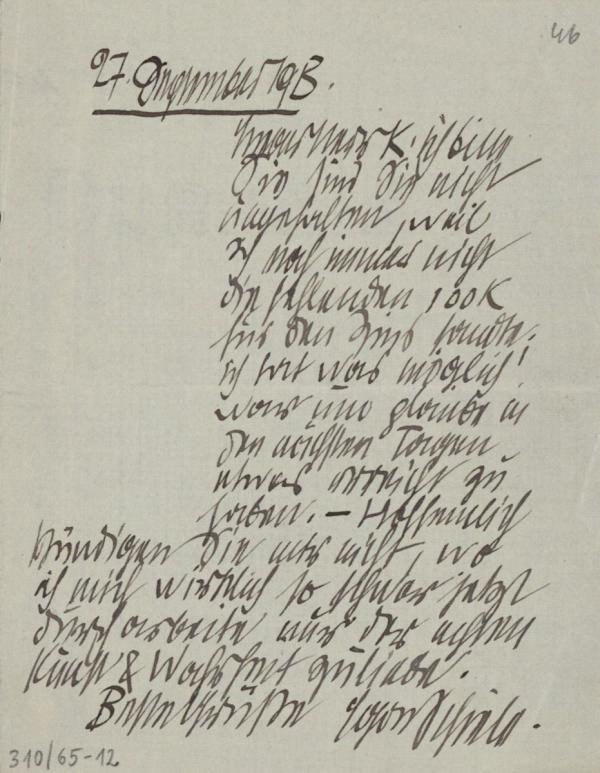 46
27. Dezember 1913.
Lieber Herr K. ich bitte
Sie sind Sie nicht
ungehalten, weil
ich noch immer nicht
die fehlenden 100 K
für den Zins sandte.
ich tat was möglich
war und glaube in
den nächsten Tagen
etwas erreicht zu
haben. – Hoffentlich
kündigen Sie mir nicht, wo
ich mich wirklich so schwer jetzt
durcharbeite nur der echten
Kunst & Wahrheit zuliebe.
Beste Grüße Egon Schiele.
310/65-12